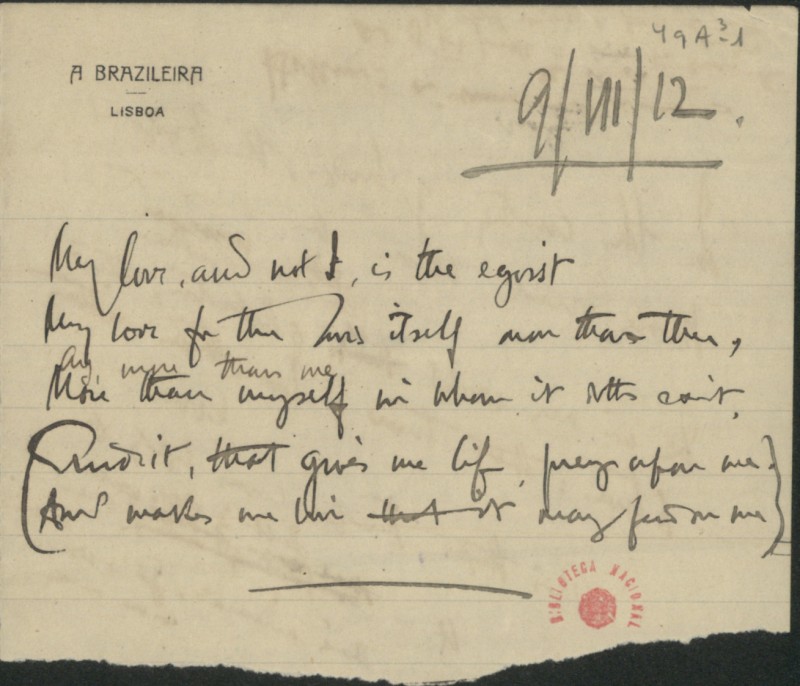 49A³-1
A BRAZILEIRA
LISBOA
9/VIII/12.
My love, and not I, is the egoist
My love for thee loves itself more than thee,
Ay more than me
More than myself in whom it doth exist,
that gives me life, preys upon me.
And makes me live that it may feed on me
BIBLIOTECA NACIONAL